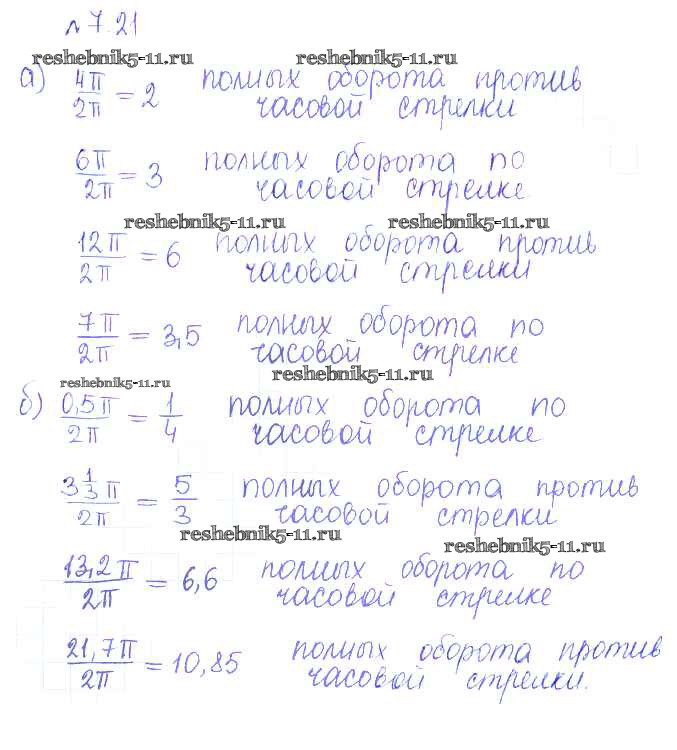 № 7.21
reshebnik5-11.ru reshebnik5-11.ru
а) 4π/2π = 2 полных оборота против
часовой стрелки
6π/2π = 3 полных оборота по
часовой стрелке
reshebnik5-11.ru reshebnik5-11.ru
12π/2π = 6 полных оборота против
часовой стрелки
7π/2π = 3,5 полных оборота по
часовой стрелке
reshebnik5-11.ru
reshebnik5-11.ru
б) 0,5π/2π = 1/4 полных оборота по
часовой стрелке
3 1/3 π/2π = 5/3 полных оборота против
часовой стрелки
reshebnik5-11.ru
reshebnik5-11.ru
13,2π/2π = 6,6 полных оборота по
часовой стрелке
21,7π/2π = 10,85 полных оборота против
часовой стрелки.